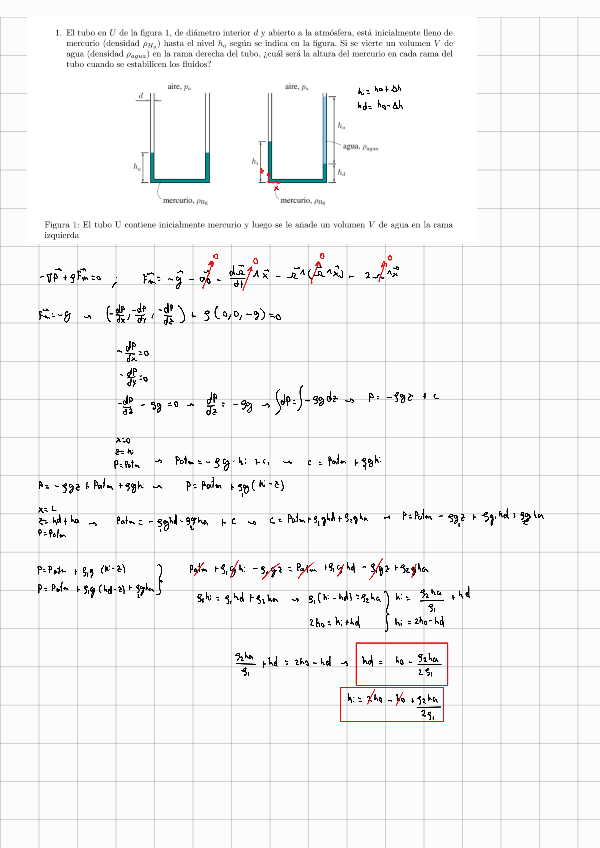 1. El tubo en U de la figura 1, de diámetro interior d y abierto a la atmósfera, está inicialmente lleno de
mercurio (densidad ρHg) hasta el nivel ho según se indica en la figura. Si se vierte un volumen V de
agua (densidad ρagua) en la rama derecha del tubo, ¿cuál será la altura del mercurio en cada rama del
tubo cuando se estabilicen los fluidos?
aire, pa
d
ho
mercurio, ρHg
aire, pa
hi
ha
agua, ρagua
hd
x
mercurio, ρHg
hi = ho + Δh
hd = ho - Δh
Figura 1: El tubo U contiene inicialmente mercurio y luego se le añade un volumen V de agua en la rama
izquierda
-∇P + ρFm = 0 ; Fm = -g - a0 - dΩ/dt ∧ x - Ω ∧ (Ω ∧ x) - 2Ω ∧ v
0 0 0 0
Fm = -g → (-dP/dx, -dP/dy, -dP/dz) + ρ(0,0,-g) = 0
-dP/dx = 0
-dP/dy = 0
-dP/dz - ρg = 0 → dP/dz = -ρg → ∫dP = ∫-ρg dz → P = -ρgz + c
x=0
z=hi
P=Patm → Patm = -ρ1g·hi + c1 → c = Patm + ρghi
P = -ρgz + Patm + ρghi → P = Patm + ρg(hi-z)
x=L
z=hd+ha → Patm = -ρ1ghd - ρ2gha + c → c = Patm + ρ1ghd + ρ2gha → P = Patm - ρgz + ρ1ghd + ρ2gha
P=Patm
P = Patm + ρ1g(hi-z)
P = Patm + ρ1g(hd-z) + ρ2gha
Patm + ρ1ghi - ρ1gz = Patm + ρ1ghd - ρ1gz + ρ2gha
ρ1hi = ρ1hd + ρ2ha → ρ1(hi-hd) = ρ2ha
2ho = hi + hd
hi = ρ2ha/ρ1 + hd
hi = 2ho - hd
ρ2ha/ρ1 + hd = 2ho - hd → hd = ho - ρ2ha/2ρ1
hi = 2ho - ho + ρ2ha/2ρ1